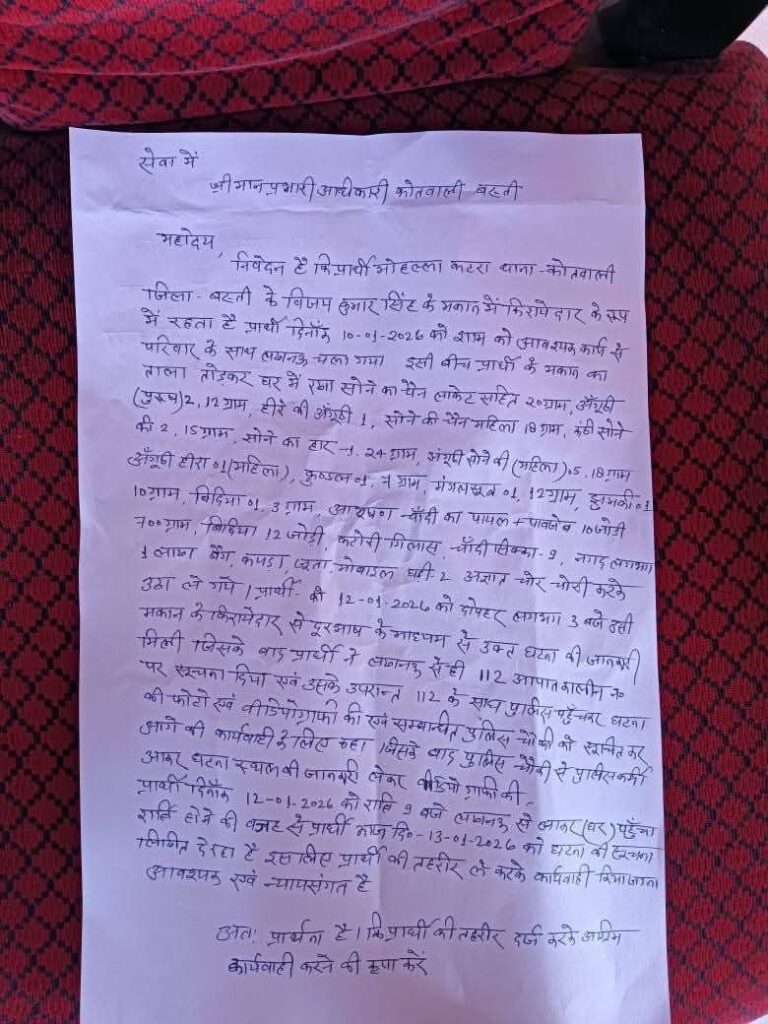 सेवा में
श्रीमान प्रभारी अधिकारी कोतवाली बस्ती
महोदय,
निवेदन है कि प्रार्थी मोहल्ला कटरा थाना - कोतवाली
जिला - बस्ती के विजय कुमार सिंह के मकान में किरायेदार के रूप
में रहता है प्रार्थी दिनाँक 10-01-2026 को शाम को आवश्यक कार्य से
परिवार के साथ लखनऊ चला गया इसी बीच प्रार्थी के मकान का
ताला तोड़कर घर में रखा सोने का चैन लाकेट सहित 20 ग्राम, अँगूठी
(पुरुष) 2, 12 ग्राम, हीरे की अँगूठी 1, सोने की चैन महिला 18 ग्राम, कंठी सोने
की 2, 15 ग्राम, सोने का हार -1, 24 ग्राम, अंगूठी सोने की (महिला) 05, 18 ग्राम
अँगूठी हीरा 01 (महिला), कुण्डल 01, 7 ग्राम, मंगलसूत्र 01, 12 ग्राम, झुमकी 01
10 ग्राम, बिंदिया 01, 3 ग्राम, चाँदी का पायल + पावजेब 10 जोड़ी
700 ग्राम, बिछिया 12 जोड़ी, कटोरी गिलास, चाँदी सिक्का - 9, नगद लगभग
1 लाख बैग, कपड़ा, जूता, मोबाइल घड़ी - 2 अज्ञात चोर चोरी करके
उठा ले गये। प्रार्थी को 12-01-2026 को दोपहर लगभग 3 बजे उसी
मकान के किरायेदार से दूरभाष के माध्यम से उक्त घटना की जानकारी
मिली जिसके बाद प्रार्थी ने लखनऊ से ही 112 आपातकालीन न०
पर सूचना दिया एवं उसके उपरान्त 112 के साथ पुलिस पहुँचकर घटना
की फोटो एवं वीडियोग्राफी की एवं सम्बन्धित पुलिस चौकी को सूचित कर
आगे की कार्यवाही के लिए कहा। जिसके बाद पुलिस चौकी से पुलिसकर्मी
आकर घटना स्थल की जानकारी लेकर वीडियोग्राफी की,
प्रार्थी दिनाँक 12-01-2026 को रात्रि 9 बजे लखनऊ से आकर (घर) पहुँचा
रात्रि होने की वजह से प्रार्थी आज दि०-13-01-2026 को घटना की सूचना
लिखित दे रहा है इसलिए प्रार्थी की तहरीर ले करके कार्यवाही किया जाना
आवश्यक एवं न्यायसंगत है
अतः प्रार्थना है। कि प्रार्थी की तहरीर दर्ज करके अग्रिम
कार्यवाही करने की कृपा करें